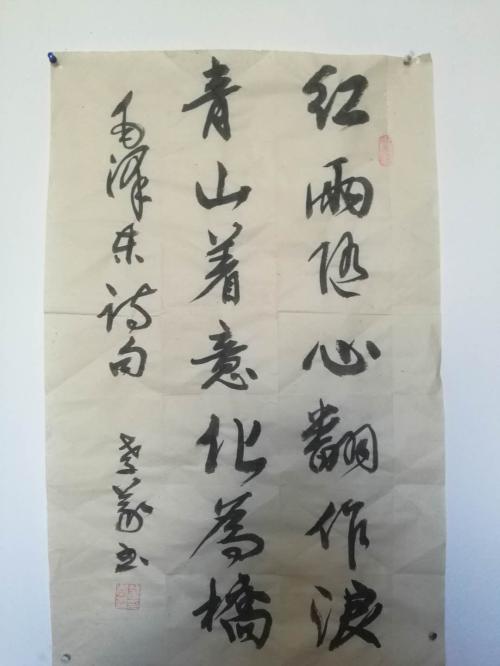 红雨随心翻作浪
青山着意化為橋
毛泽东诗句 书